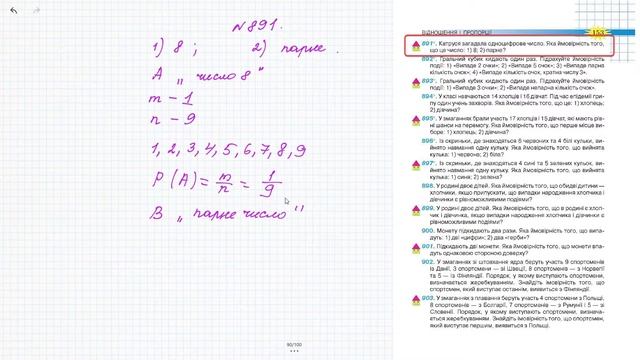 N 891.
1) 8 ; 2) парне .
A „ число 8 "
m – 1
n – 9
1, 2, 3, 4, 5, 6, 7, 8, 9
P (A) = m/n = 1/9
B „ парне число "
90/100
ВІДНОШЕННЯ І ПРОПОРЦІЇ
891°. Катруся загадала одноцифрове число. Яка ймовірність того,
що це число: 1) 8; 2) парне?
892°. Гральний кубик кидають один раз. Підрахуйте ймовірність
події: 1) «Випаде 2 очки»; 2) «Випаде 5 очок»; 3) «Випаде парна
кількість очок»; 4) «Випаде кількість очок, кратна числу 3».
893°. Гральний кубик кидають один раз. Підрахуйте ймовірність
події: 1) «Випаде 3 очки»; 2) «Випаде непарна кількість очок».
894°. У класі навчаються 14 хлопців і 16 дівчат. Під час епідемії грипу
один учень захворів. Яка ймовірність того, що це: 1) хлопець;
2) дівчина?
895°. У змаганнях брали участь 17 хлопців і 15 дівчат, які мають рівні
шанси на перемогу. Яка ймовірність того, що перше місце виборе:
1) хлопець; 2) дівчина?
896°. Із скриньки, де знаходяться 6 червоних та 4 білі кульки, виймають
навмання одну кульку. Яка ймовірність того, що вийнята
кулька: 1) червона; 2) біла?
897°. Із скриньки, де знаходяться 4 сині та 5 зелених кульок, виймають
навмання одну кульку. Яка ймовірність того, що вийнята
кулька: 1) синя; 2) зелена?
898. У родині двоє дітей. Яка ймовірність того, що обидві дитини —
хлопчики, якщо припускати, що випадки народження хлопчика
і дівчинки є рівноможливими подіями?
899. У родині двоє дітей. Яка ймовірність того, що в родині є хлопчик
і дівчинка, якщо випадки народження хлопчика і дівчинки
є рівноможливими подіями?
900. Монету підкидають два рази. Яка ймовірність того, що випадуть:
1) дві «цифри»; 2) два «герби»?
901. Підкидають дві монети. Яка ймовірність того, що монети впадуть
однаковою стороною доверху?
902. У змаганнях зі штовхання ядра беруть участь 9 спортсменів
із Данії, 3 спортсмени — зі Швеції, 8 спортсменів — з Норвегії
та 5 — із Фінляндії. Порядок, у якому виступають спортсмени,
визначається жеребкуванням. Знайдіть ймовірність того, що
спортсмен, який виступає останнім, виявиться з Фінляндії.
903. У змаганнях з плавання беруть участь 4 спортсмени з Польщі,
8 спортсменів — з Болгарії, 7 спортсменів — з Румунії і 5 — зі
Словенії. Порядок, у якому виступають спортсмени, визначається
жеребкуванням. Знайдіть ймовірність того, що спортсмен,
який виступає першим, виявиться з Польщі.